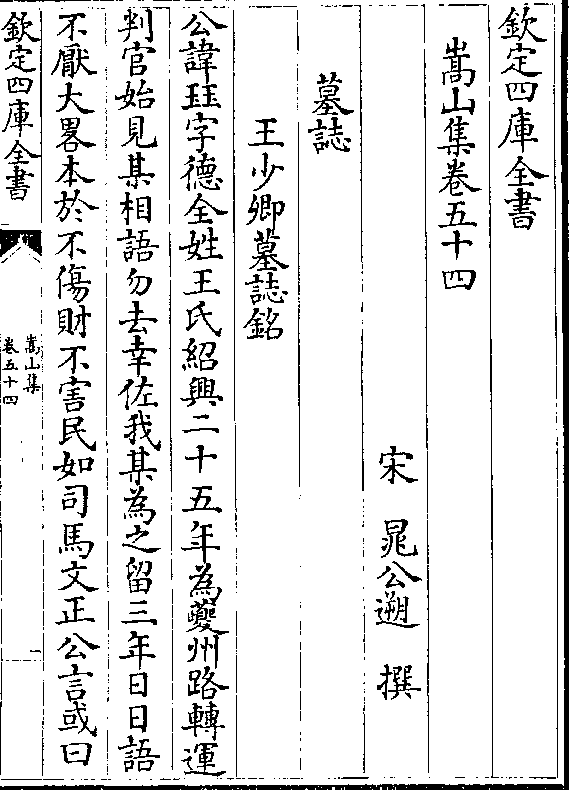 欽定四庫全書
嵩山集卷五十四
宋 晁公遡 撰
墓誌
王少卿墓誌銘
公諱珏字德全姓王氏紹興二十五年為夔州路轉運
判官始見某相語勿去幸佐我某為之留三年日日語
不厭大畧本於不傷財不害民如司馬文正公言或曰
欽定四庫全書
嵩山集
卷五十四
一